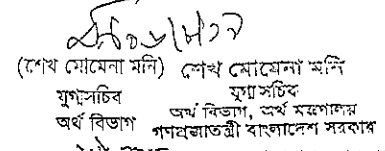 (শেখ মোমেনা মনি)
যুগ্মসচিব
অর্থ বিভাগ
শেখ মোমেনা মনি
যুগ্মসচিব
অর্থ বিভাগ, অর্থ মন্ত্রণালয়
গণপ্রজাতন্ত্রী বাংলাদেশ সরকার